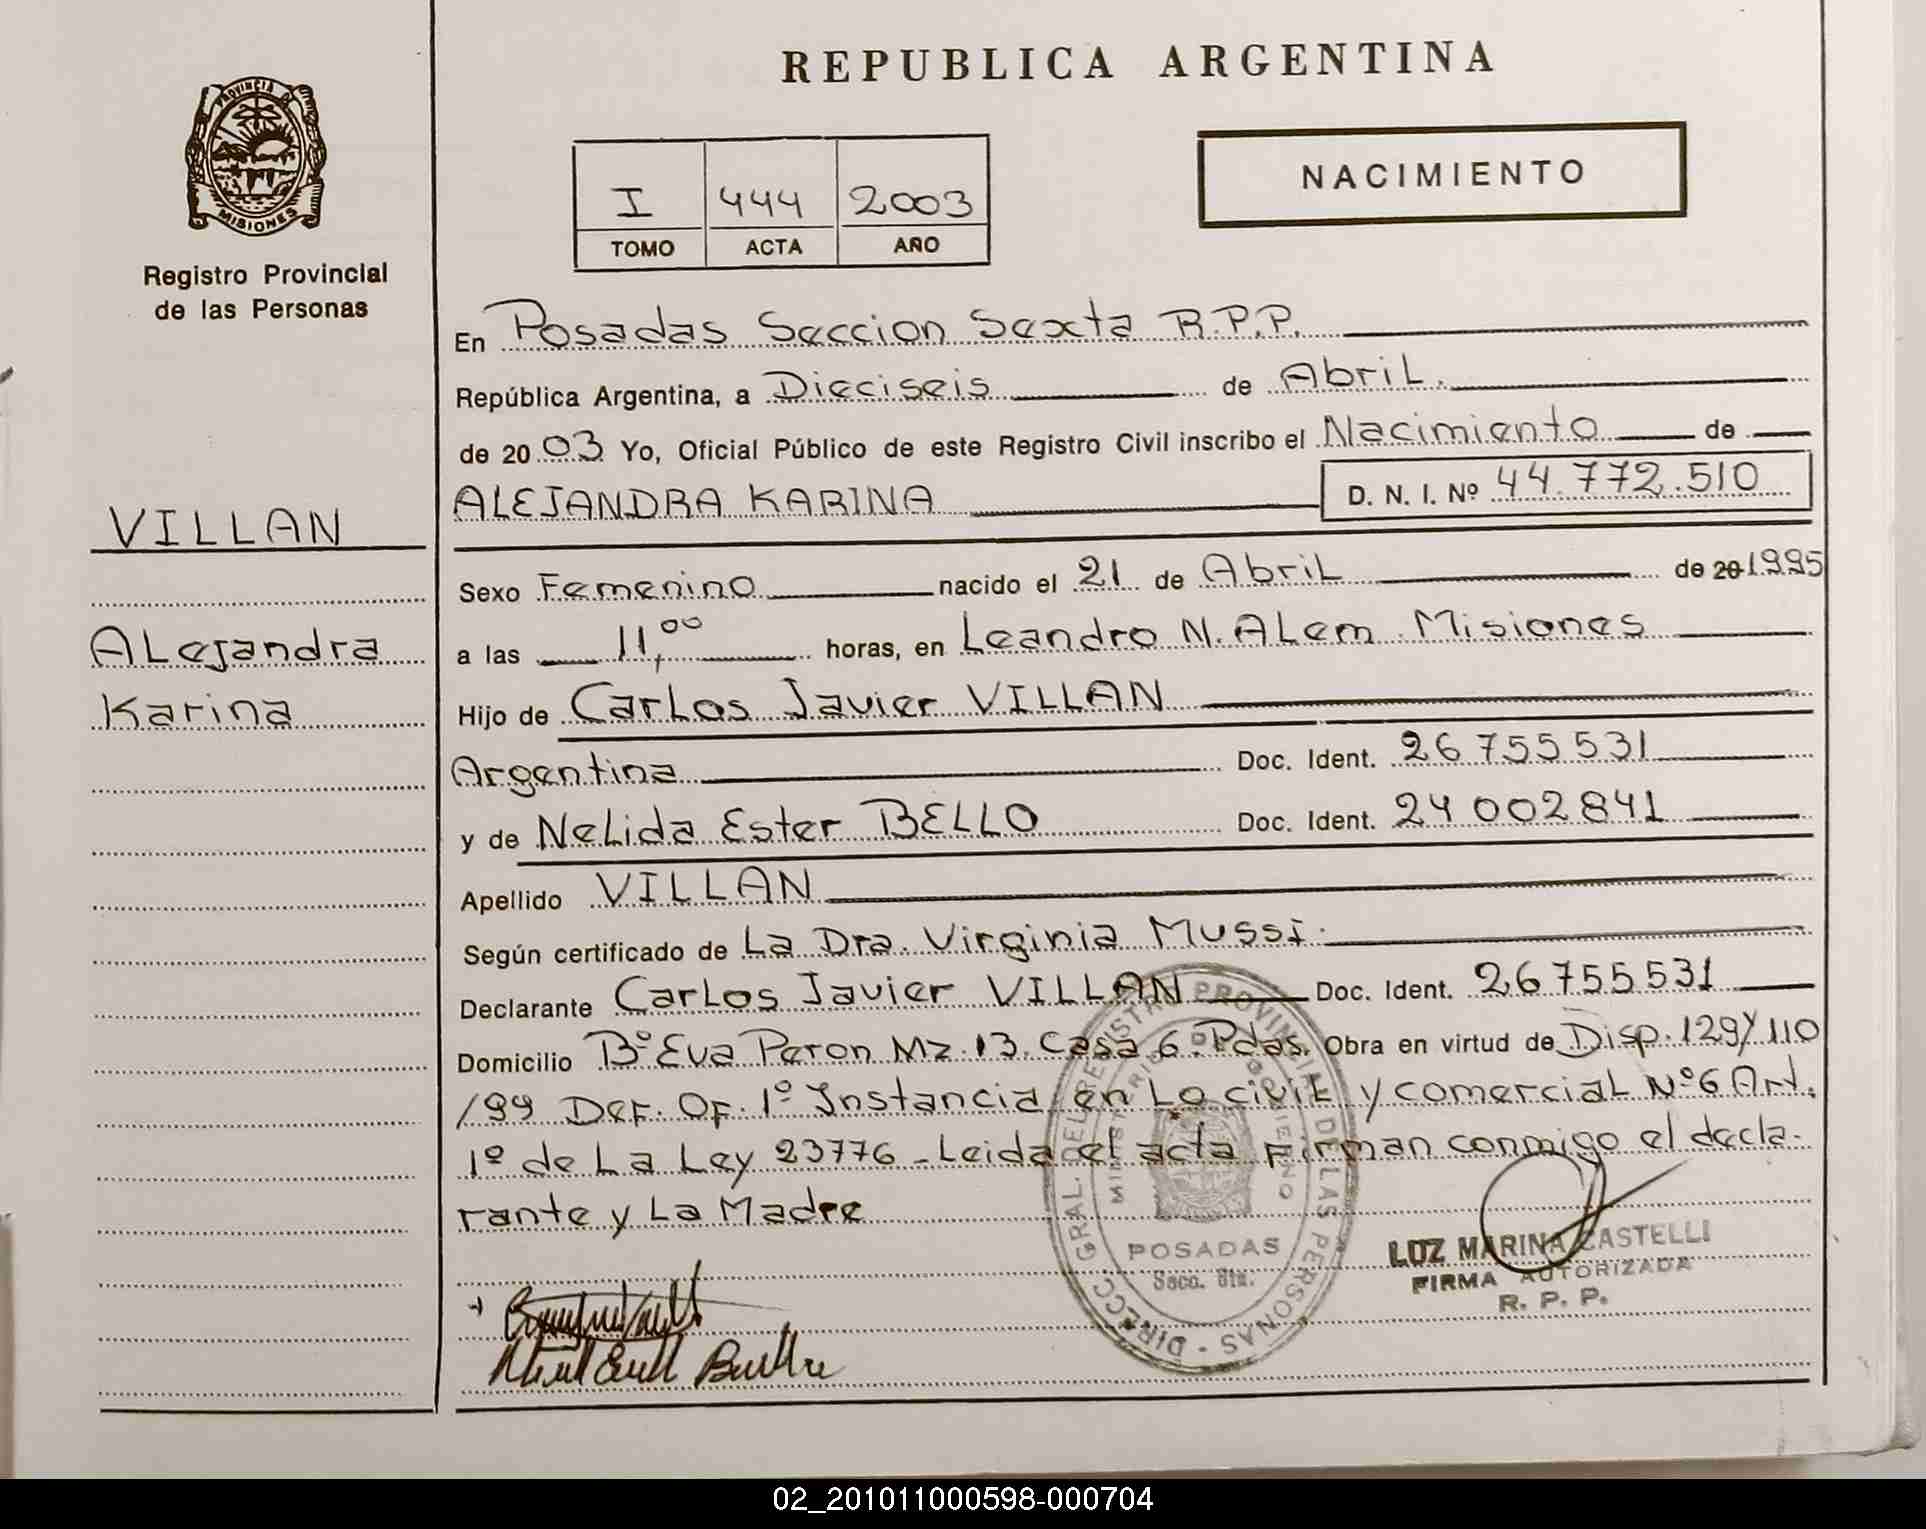 REPUBLICA ARGENTINA
PROVINCIA D
MISIONES
Registro Provincial
de las Personas
NACIMIENTO
I 444 2003
TOMO ACTA AÑO
En Posadas Seccion Sexta R.P.P.
República Argentina, a Dieciseis de Abril.
de 20 03 Yo, Oficial Público de este Registro Civil inscribo el Nacimiento de
ALEJANDRA KARINA D. N. I. Nº 44.772.510
VILLAN
Alejandra
Karina
Sexo Femenino nacido el 21 de Abril de 20 1995
a las 11,00 horas, en Leandro N. Alem. Misiones
Hijo de Carlos Javier VILLAN
Argentina Doc. Ident. 26755531
y de Nelida Ester BELLO Doc. Ident. 24002841
Apellido VILLAN
Según certificado de La Dra. Virginia Mussi.
Declarante Carlos Javier VILLAN Doc. Ident. 26755531
Domicilio Bº Eva Peron Mz. 13. Casa 6. Pdas. Obra en virtud de Disp. 129/110
/99 Def. Of. 1º Instancia en Lo civil y comercial Nº6 Art.
1º de La Ley 23776 - Leida el acta firman conmigo el decla-
rante y La Madre
DIRECC. GRAL. DEL REGISTRO PROVINCIAL DE LAS PERSONAS
MINISTERIO DE GOBIERNO
POSADAS
Secc. 6ta.
LUZ MARINA CASTELLI
FIRMA AUTORIZADA
R. P. P.
02_201011000598-000704